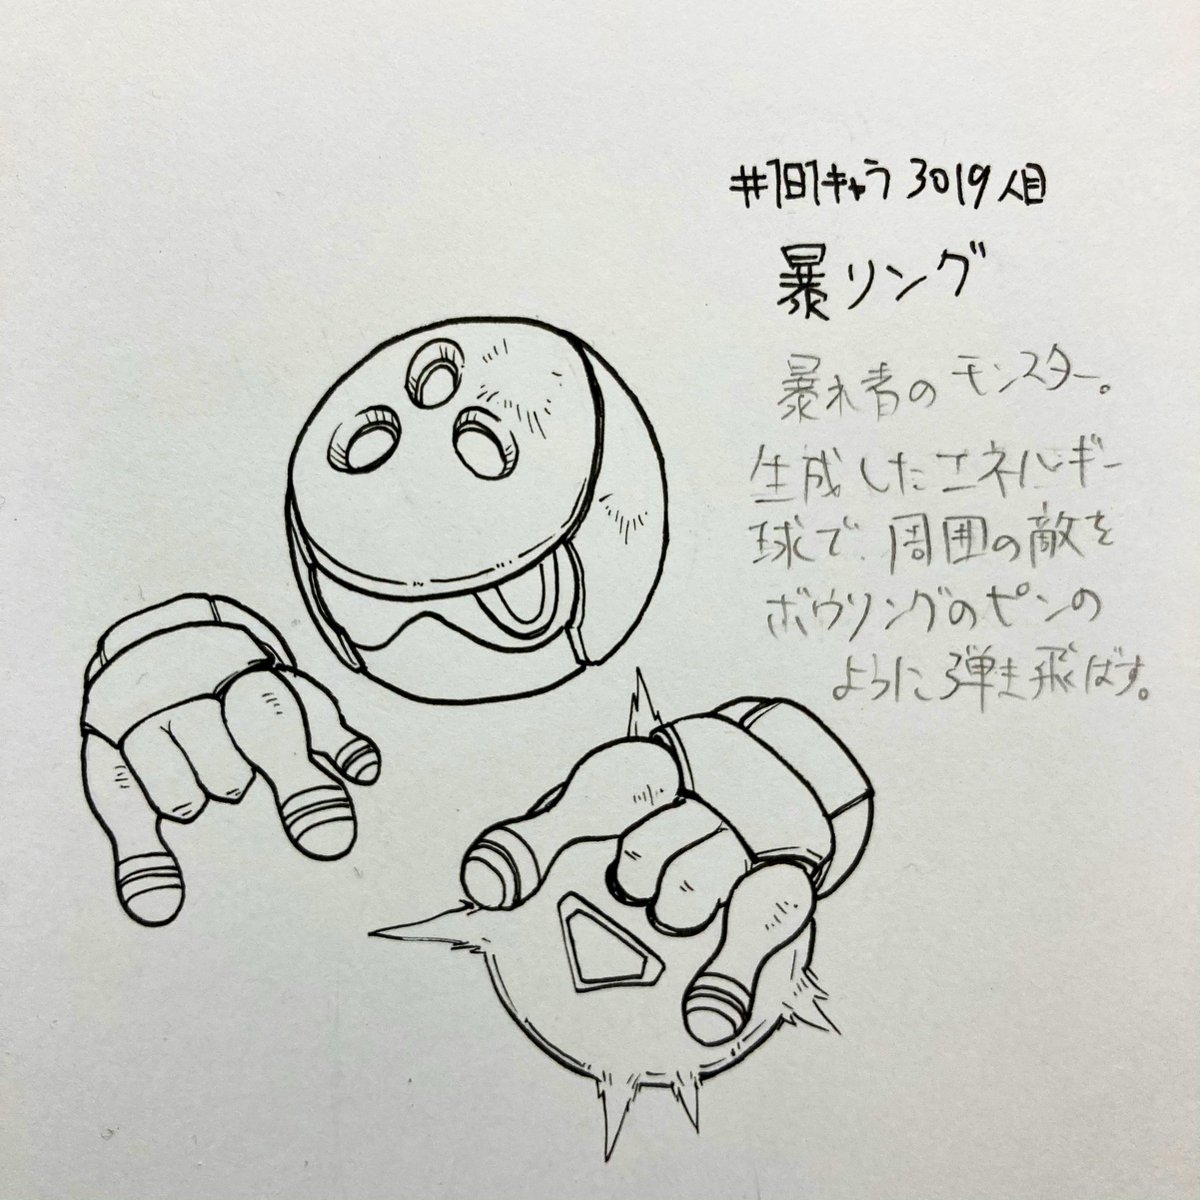 #1日1キャラ 3019人目
暴リング
暴れ者のモンスター。
生成したエネルギー
球で、周囲の敵を
ボウリングのピンの
ように弾き飛ばす。